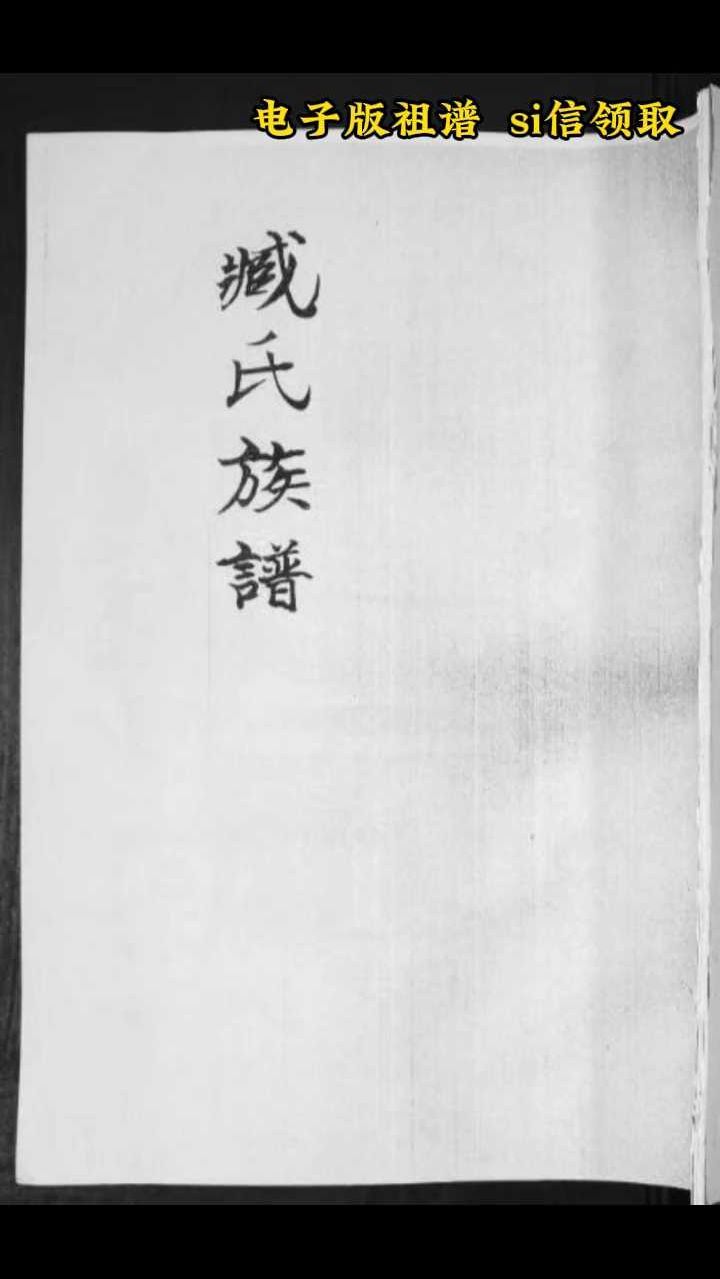 电子版祖谱 si信领取
臧氏族譜